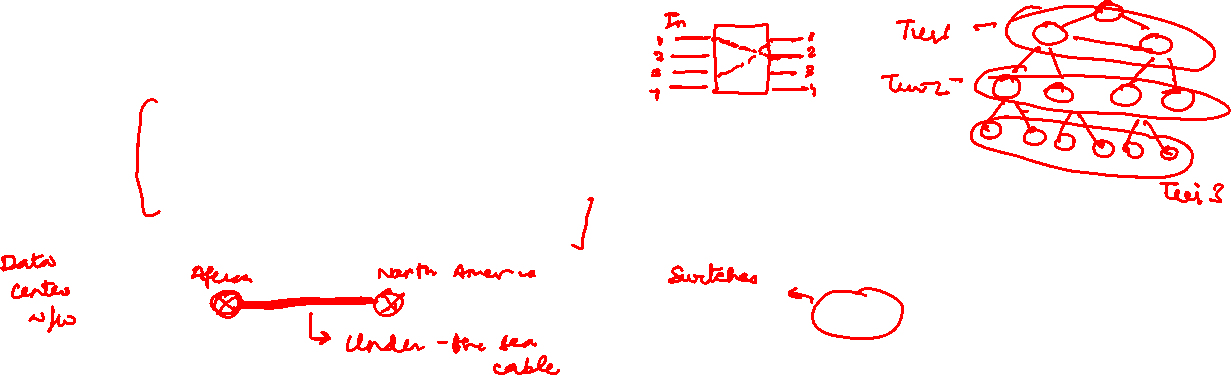 In
1 1
2 2
3 3
4 4
Tier 1
Tier 2
Tier 3
Data
center
n/w
Africa
North America
Under-the sea
cable
Switches